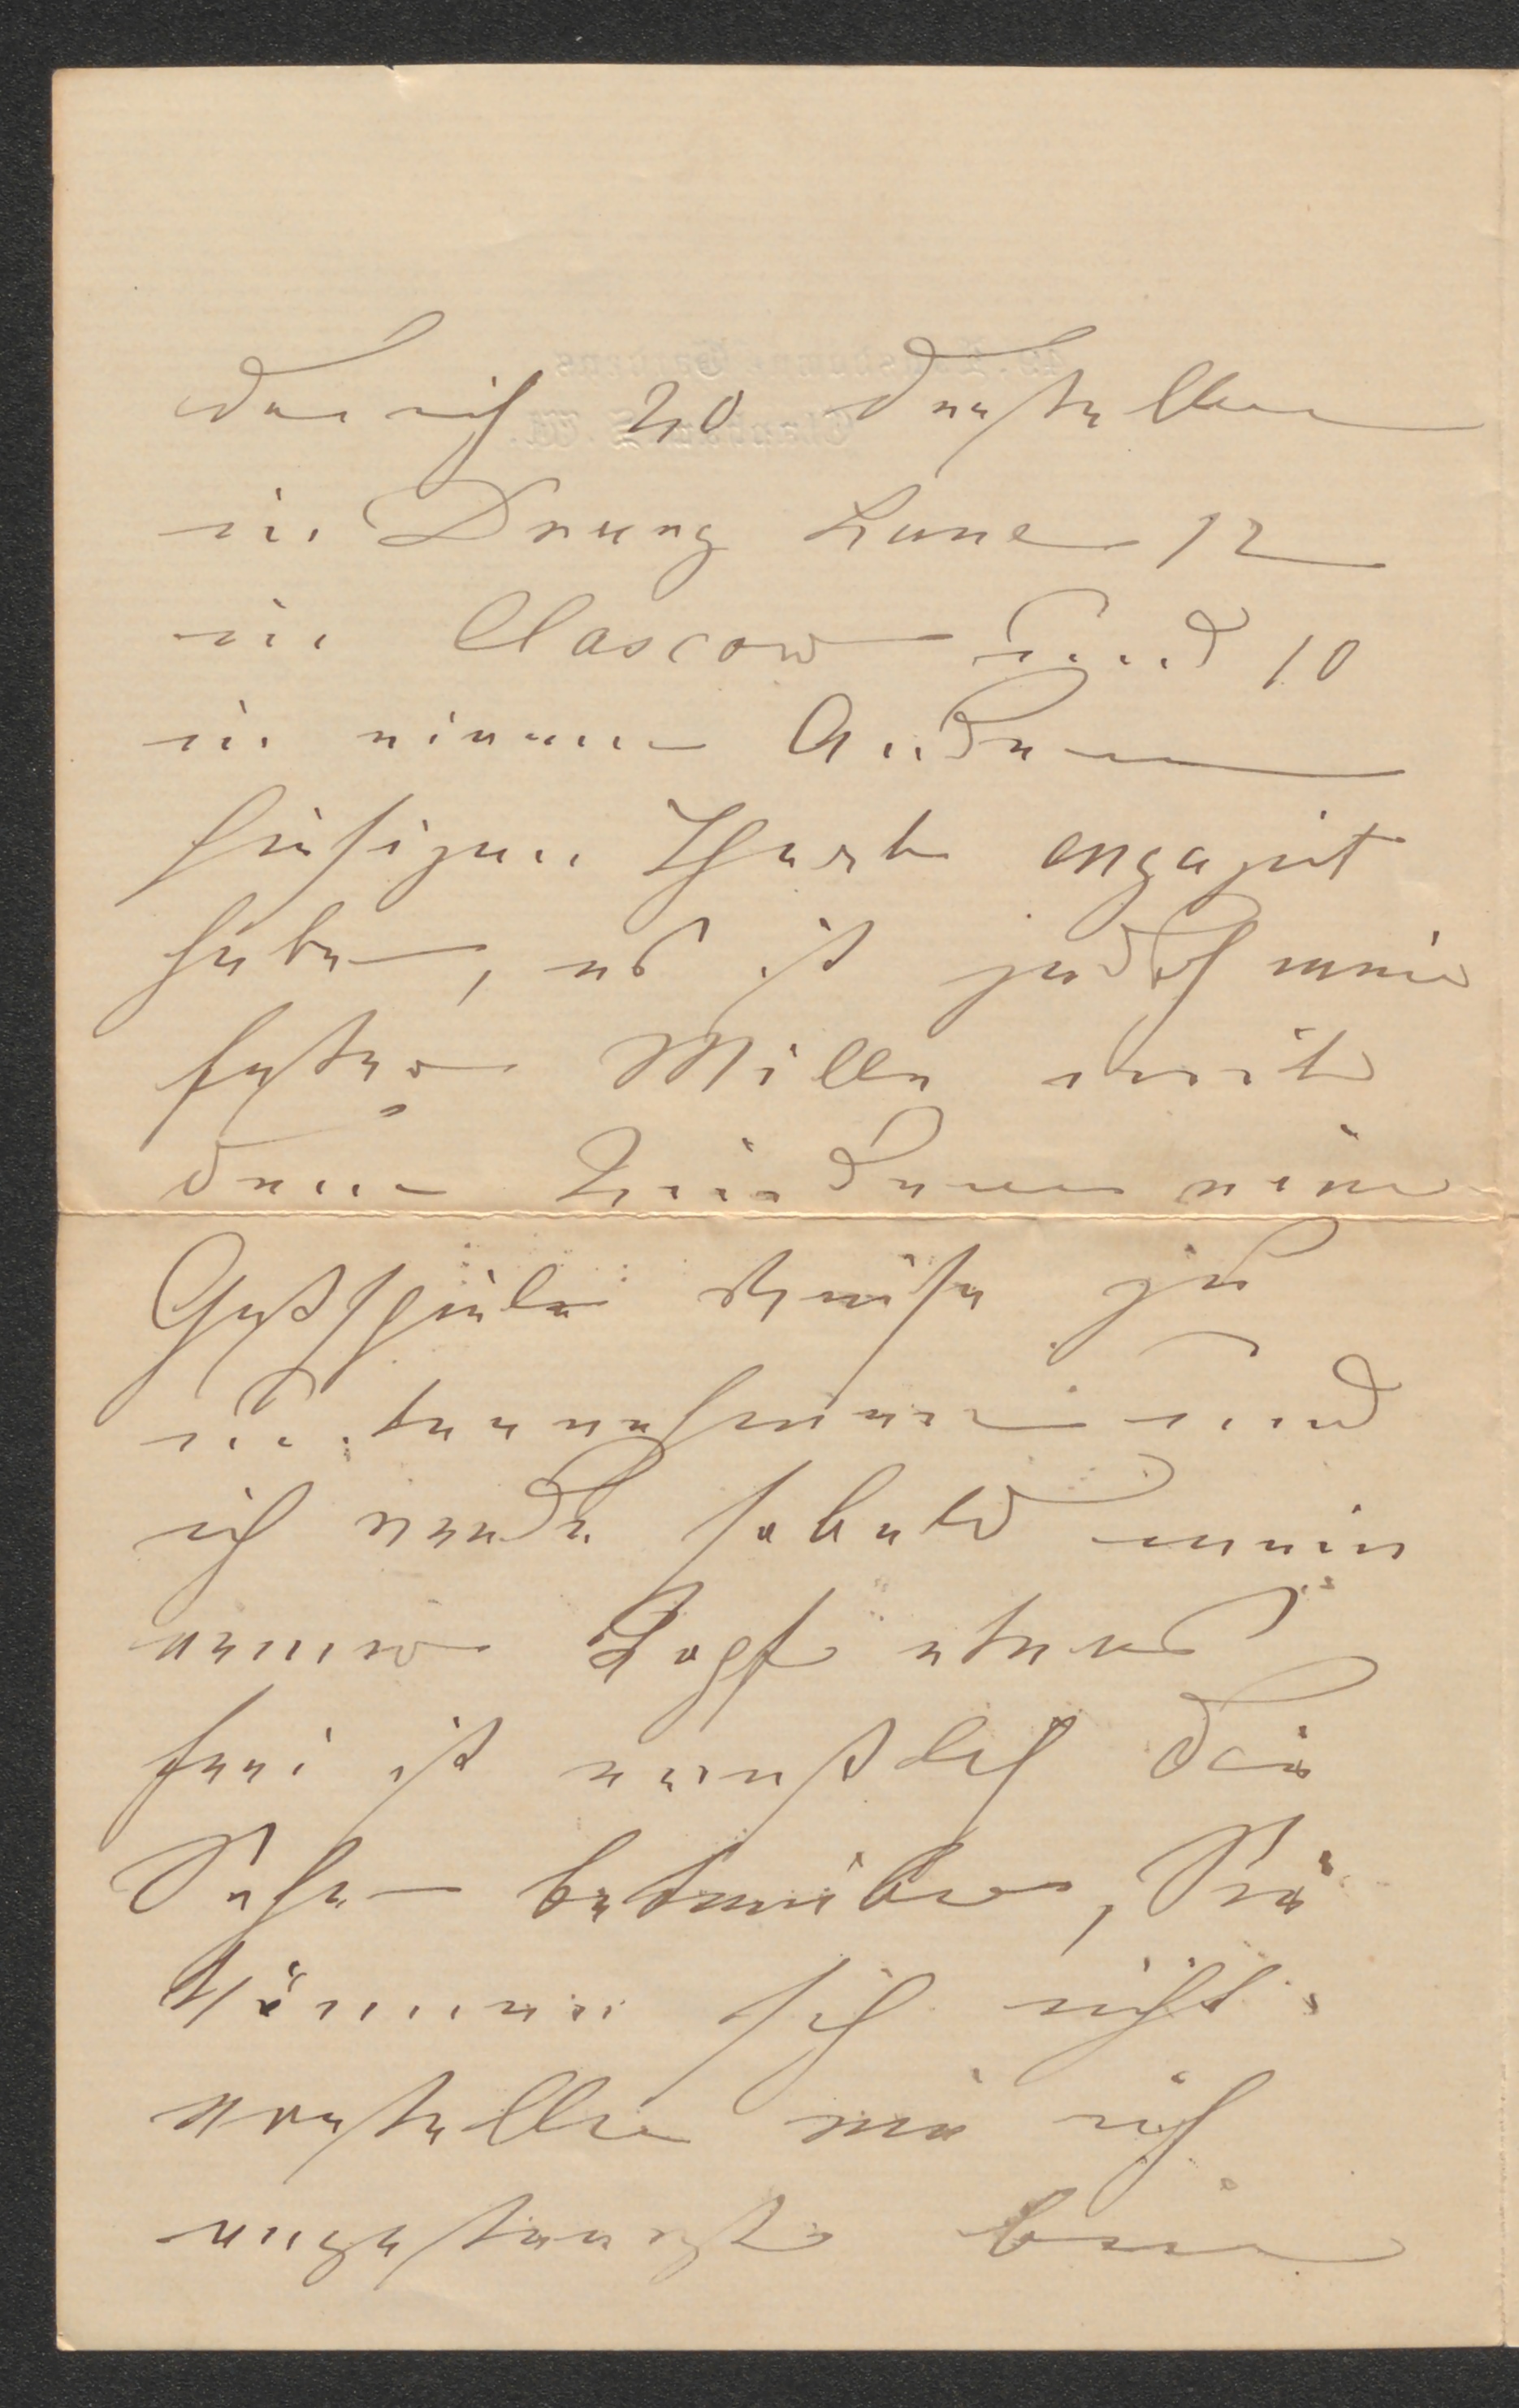 da ich 20 derselben
in Drury Lane 12
in Glascow und 10
in einem Anderen
hiesigen Theat engagirt
habe, es ist jedoch mein
fester Wille mit
den Kindern eine
Gastspielreise zu
unternehmen und
ich werde sobald mein
armer Kopf etwas
frei ist ernstlich die
Sache betreiben, Sie
können sich nicht
vorstellen wie ich
angestrengt bin